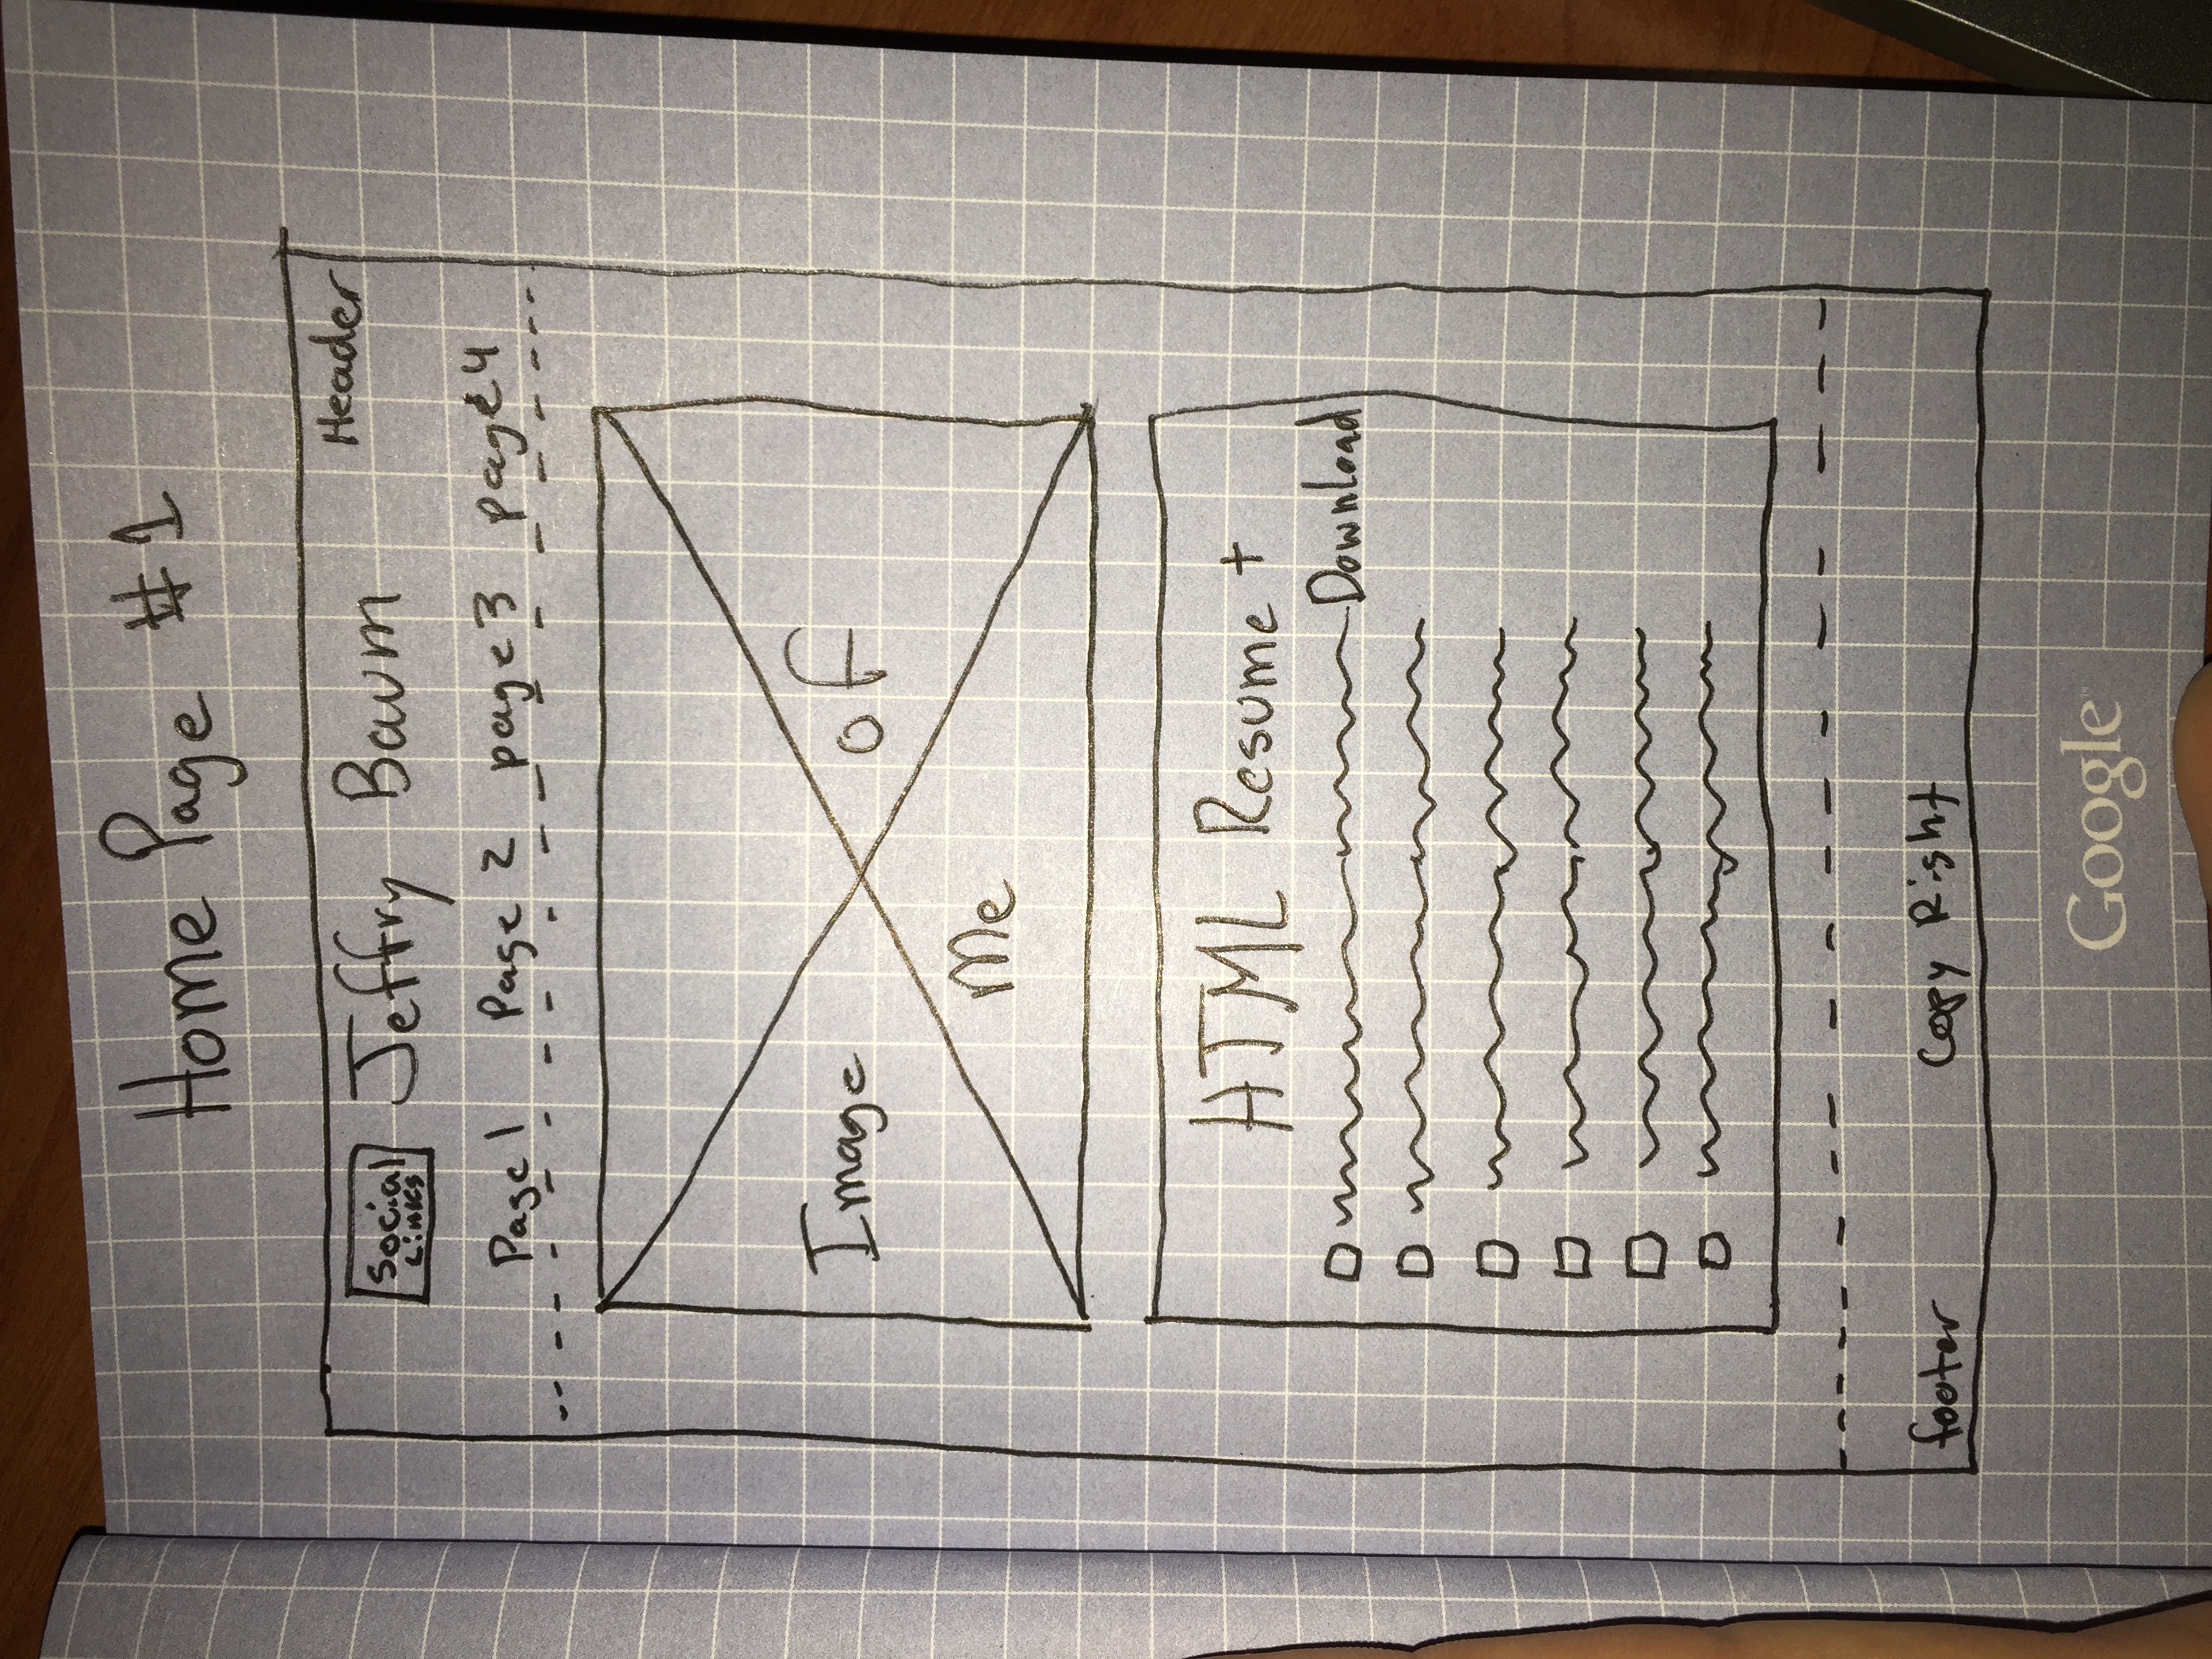 Home Page #1
Header
Social Links
Jeffry Baum
Page 1 Page 2 page 3 page 4
Image of
Me
HTML Resume +
Download
footer Copy Right
Google